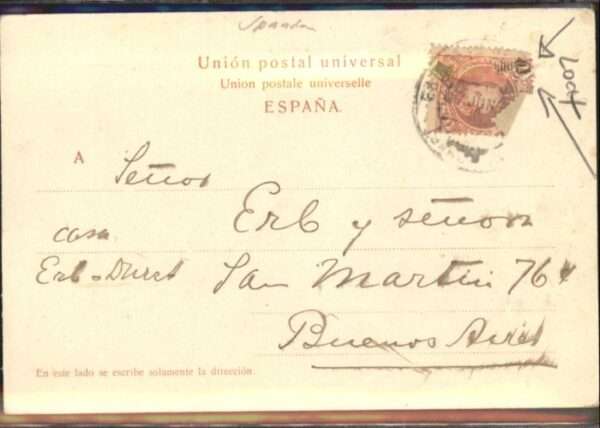 Unión postal universal
Union postale universelle
ESPAÑA.
LOOK
A Señor
Erb y señora
casa
Erb-Duret San Martin 764
Buenos Aires
En este lado se escribe solamente la dirección.